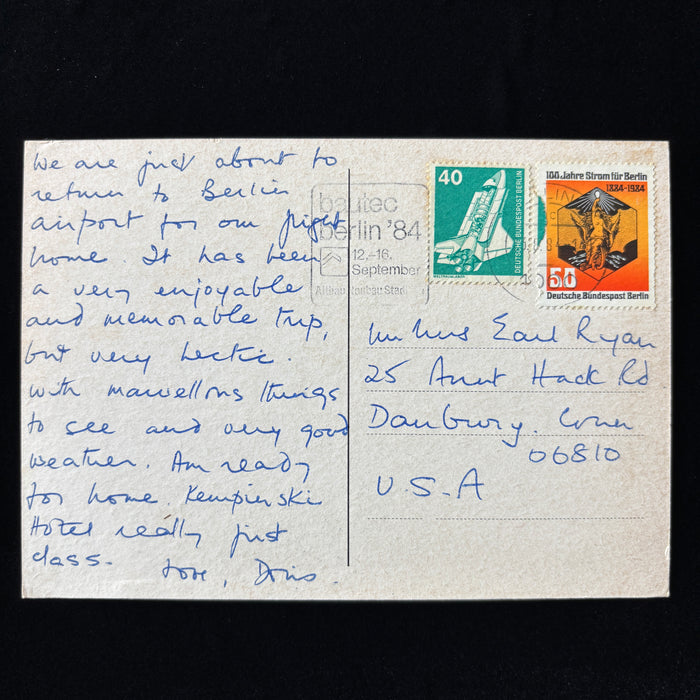 we are just about to
return to Berlin
airport for our flight
home. It has been
a very enjoyable
and memorable trip,
but very hectic.
with marvellous things
to see and very good
weather. Am ready
for home. Kempinski
Hotel really first
class.
Love, Doris.
bautec
berlin '84
12.-16.
September
40
DEUTSCHE BUNDESPOST BERLIN
100 Jahre Strom für Berlin
1884-1984
50
Deutsche Bundespost Berlin
Mr Mrs Earl Ryan
25 Aunt Hack Rd
Danbury. Conn
06810
U.S.A